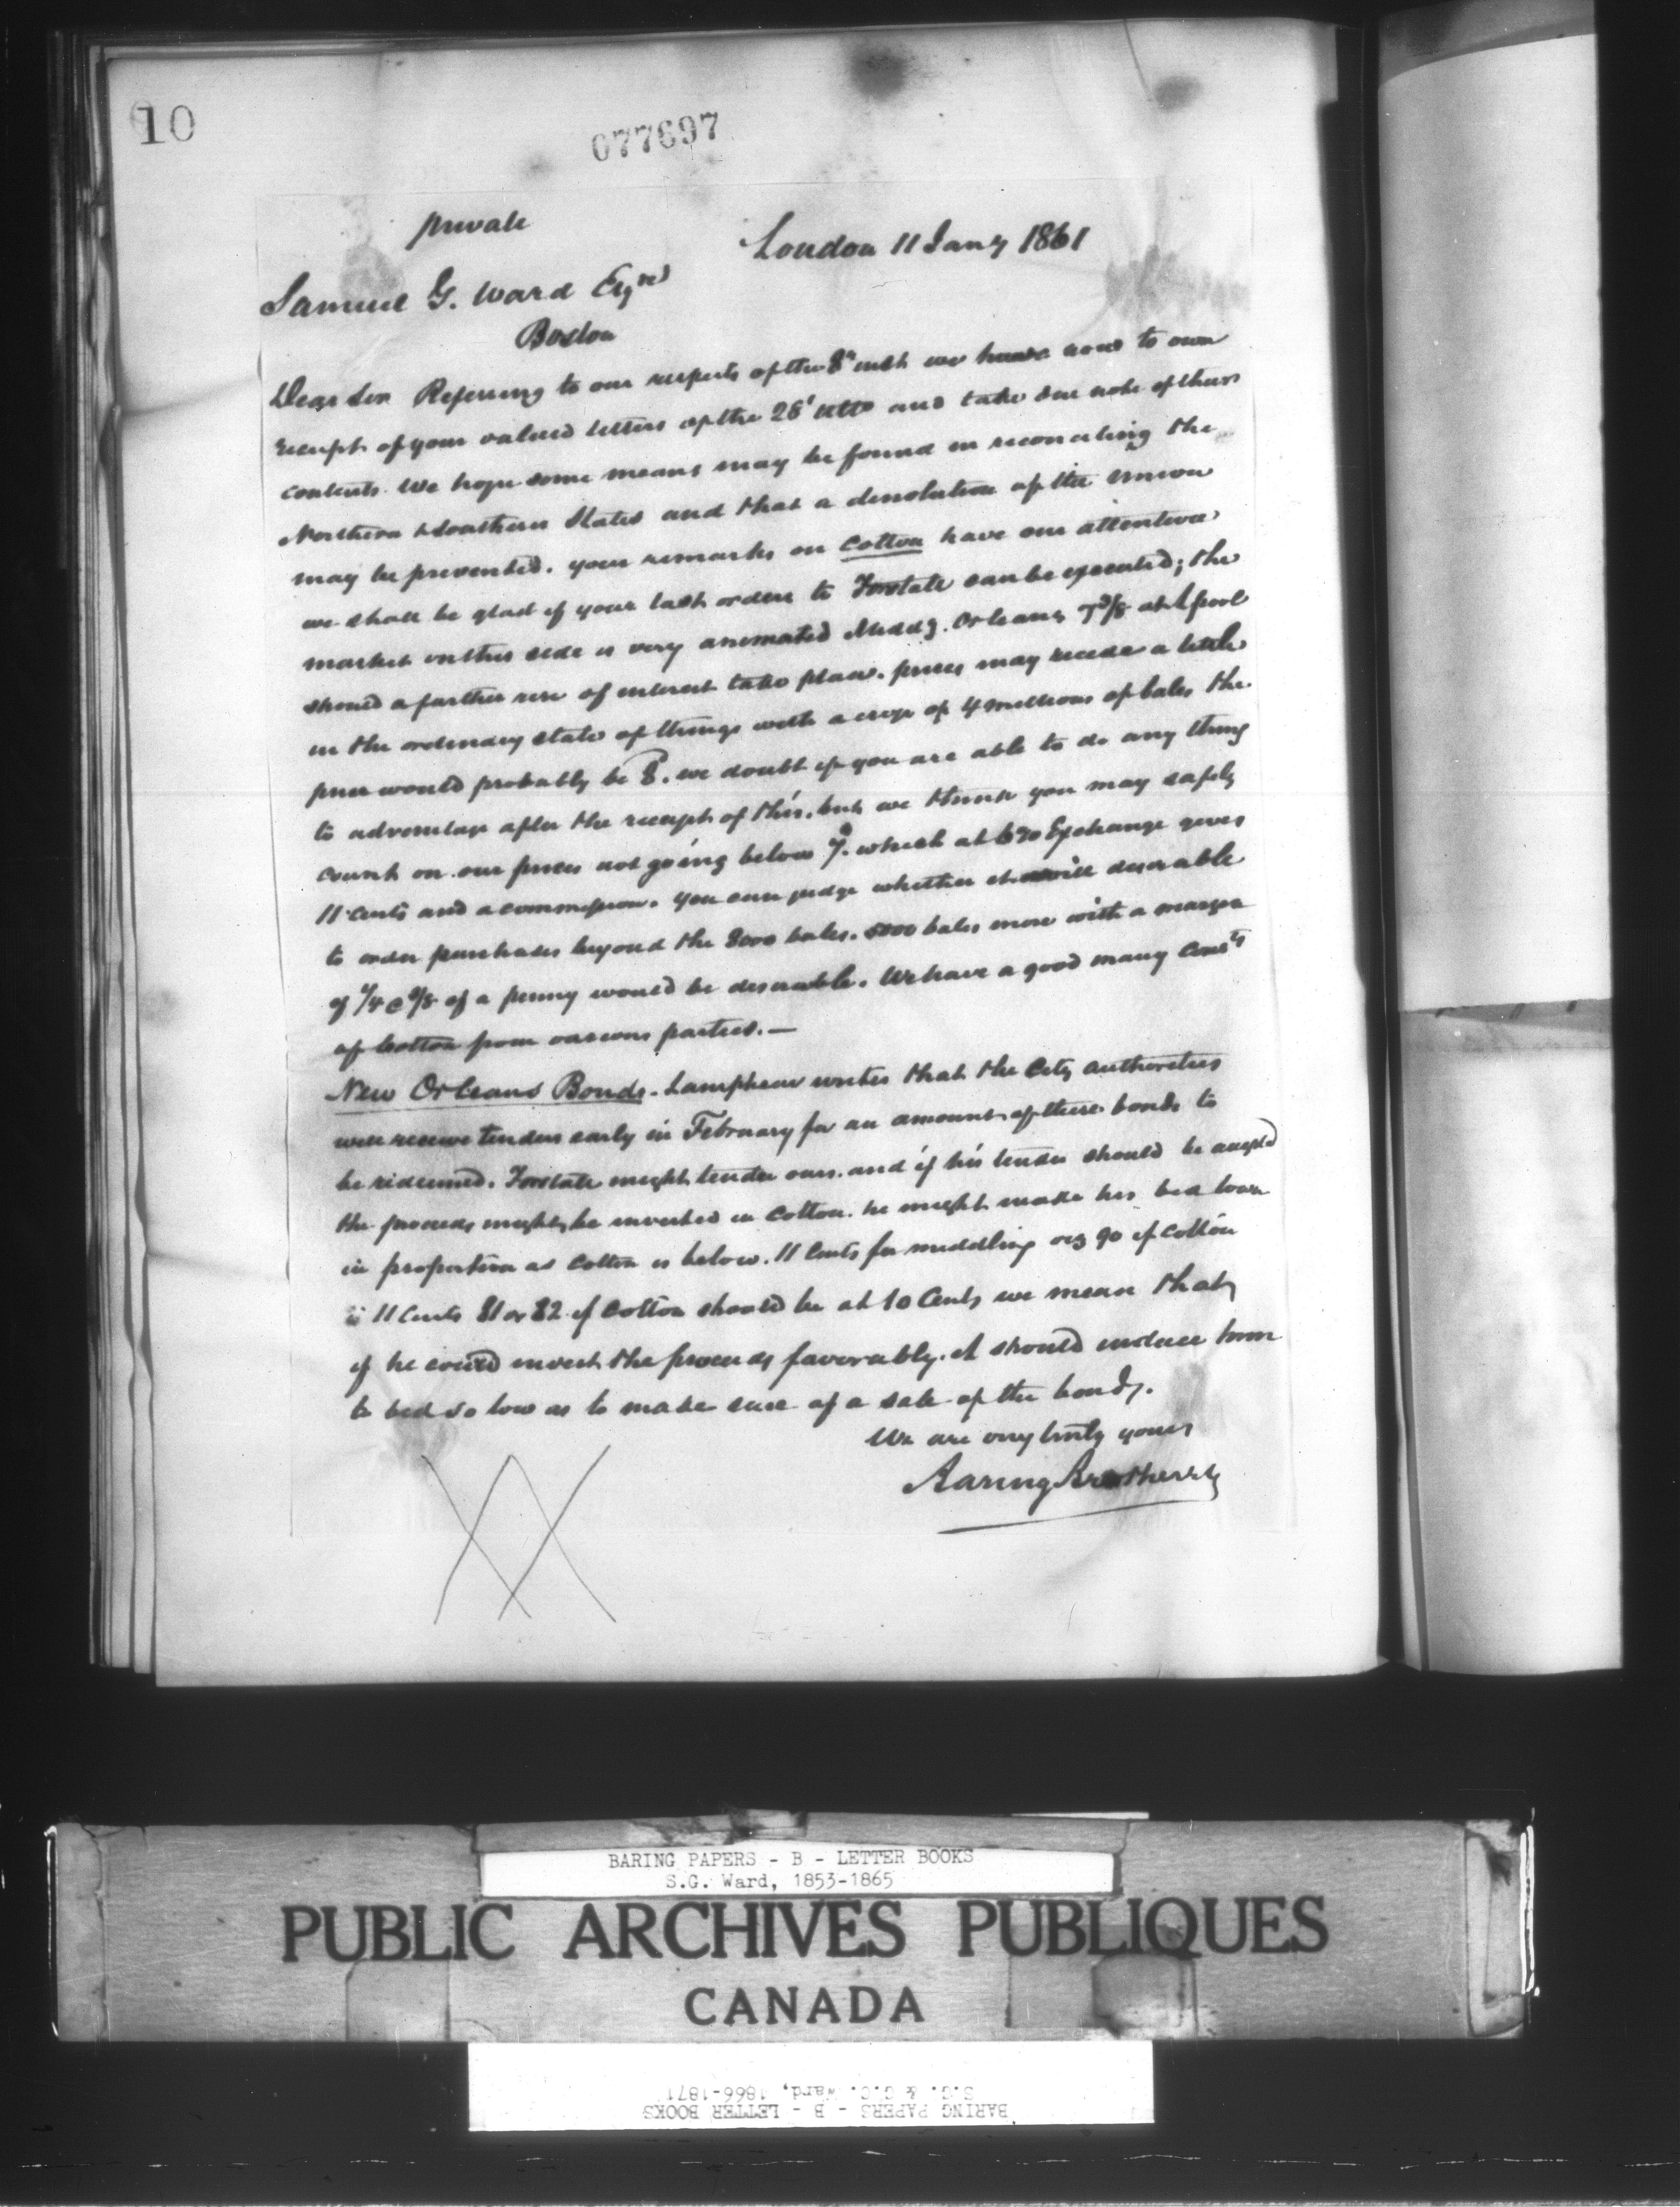 10
077697
private
London 11 Jany 1861
Samuel G. Ward Esqre
Boston
Dear Sir Referring to our respects of the 8h inst we have now to own
receipt of your valued letters of the 28' ulto and take due note of their
contents. We hope some means may be found in reconciling the
Northern & Southern States and that a disolution of the Union
may be prevented. your remarks on Cotton have our attention
we shall be glad if your last orders to Forstall can be executed; the
market on this side is very animated Middg. Orleans 7 3/8 at Lpool
should a further rise of interest take place. prices may recede a little
in the ordinary state of things with a crop of 4 millions of bales the
price would probably be 6. we doubt if you are able to do any thing
to advantage after the receipt of this, but we think you may safely
count on our prices not going below 7d. which at 6% Exchange gives
11 Cents and a commission. you can judge whether it will desirable
to order purchases beyond the 8000 bales. 5000 bales more with a margin
of 1/4 @ 3/8 of a penny would be desirable. We have a good many Consts
of Cotton from various parties.—
New Orleans Bonds. Lamphear writes that the City authorities
will receive tenders early in February for an amount of these bonds to
be redeemed. Forstall might tender ours. and if his tender should be accepted
the proceeds might be invested in Cotton. he might make his bid low
in proportion as Cotton is below. 11 Cents for middling viz 90 if Cotton
is 11 Cents 81 or 82 if Cotton should be at 10 Cents we mean that
if he could invest the proceeds favorably. it should induce him
to bid so low as to make sure of a sale of the bonds.
We are very truly yours
Baring Brothers & Co
BARING PAPERS - B - LETTER BOOKS
S.G. Ward, 1853-1865
PUBLIC ARCHIVES PUBLIQUES
CANADA
BARING PAPERS - B - LETTER BOOKS
S.G. & G.C. Ward, 1866-1871